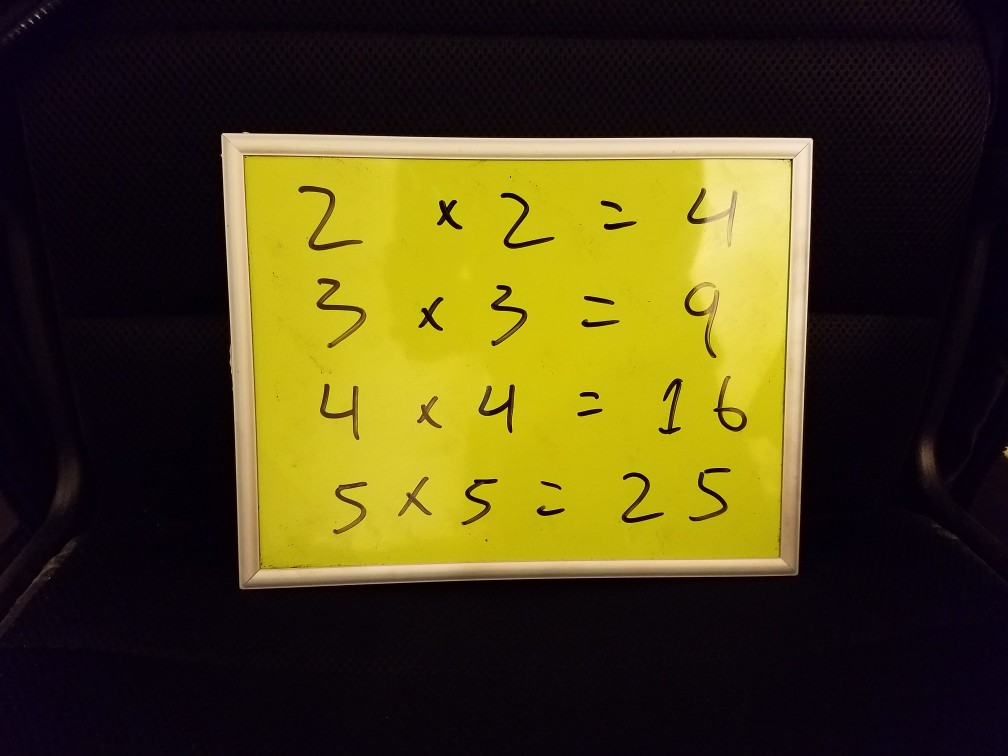 2 × 2 = 4
3 × 3 = 9
4 × 4 = 16
5 × 5 = 25